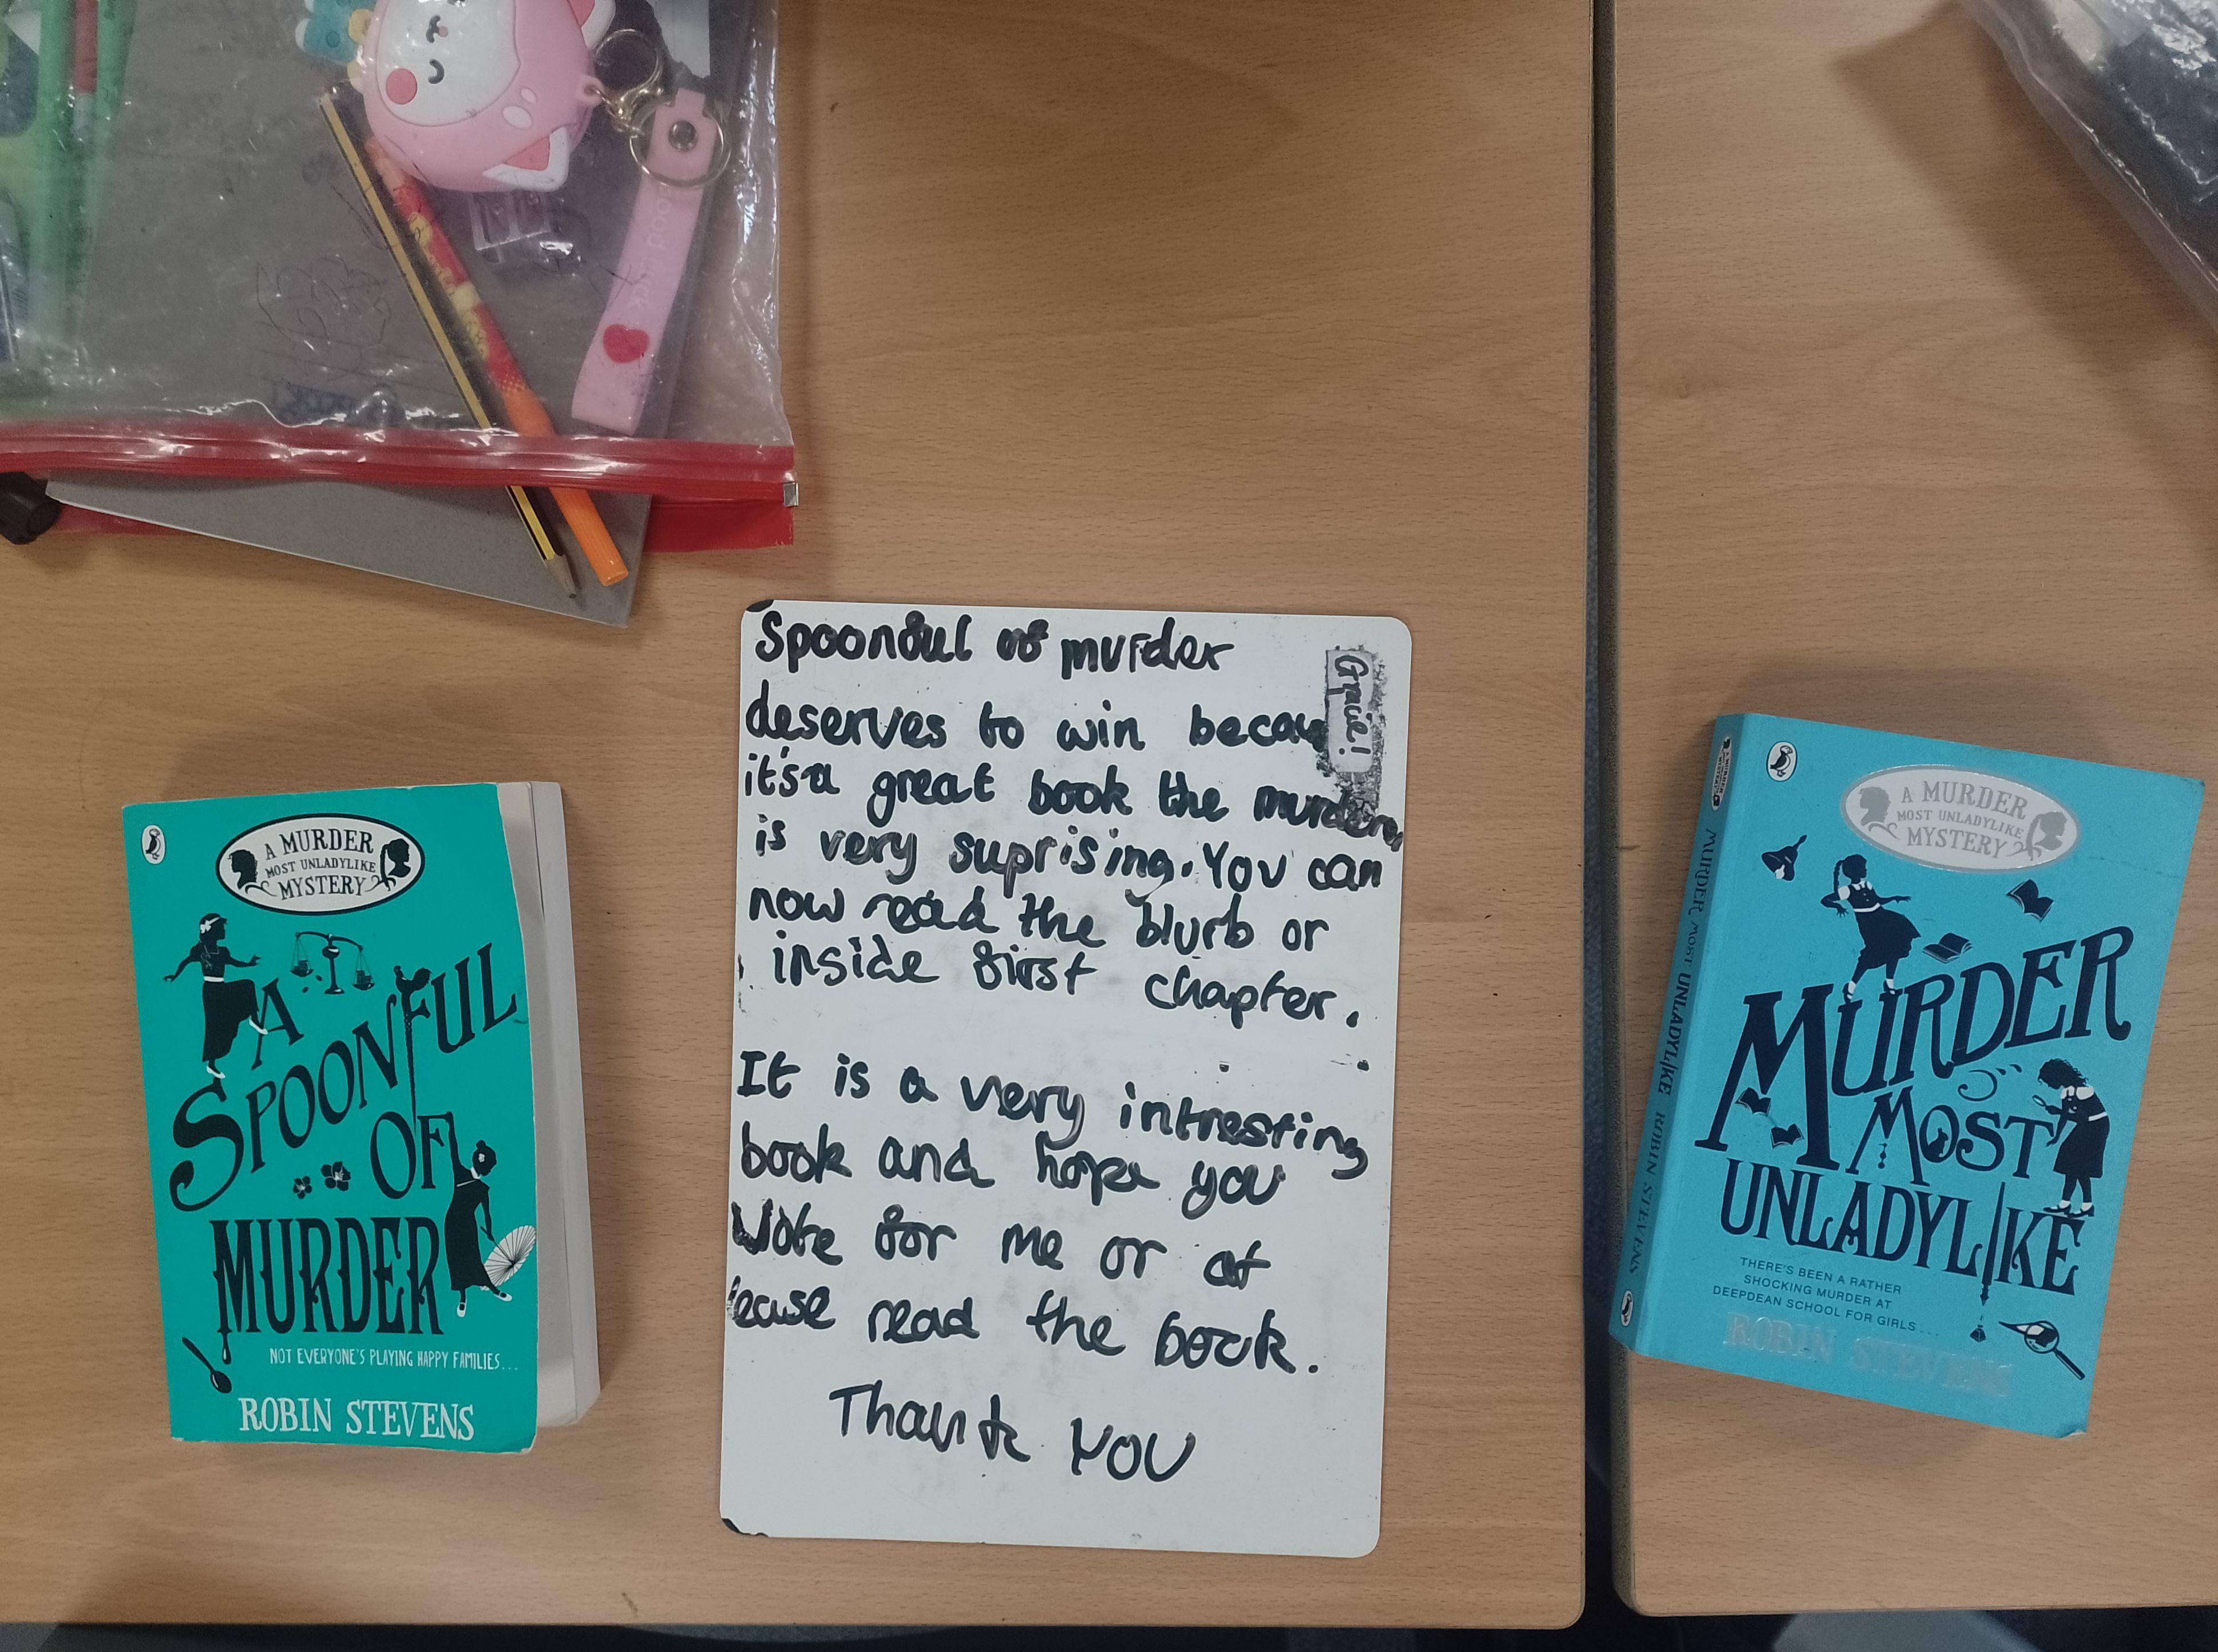 A MURDER
MOST UNLADYLIKE
MYSTERY
A
SPOONFUL
OF
MURDER
NOT EVERYONE'S PLAYING HAPPY FAMILIES...
ROBIN STEVENS
Spoonful of murder
deserves to win becau
it's a great book the murderer
is very suprising. You can
now read the blurb or
inside first chapter.
It is a very intresting
book and hope you
Vote for me or at
lease read the book.
Thank YOU
MURDER MOST UNLADYLIKE ROBIN STEVENS
A MURDER
MOST UNLADYLIKE
MYSTERY
MURDER
MOST
UNLADYLIKE
THERE'S BEEN A RATHER
SHOCKING MURDER AT
DEEPDEAN SCHOOL FOR GIRLS...
ROBIN STEVENS